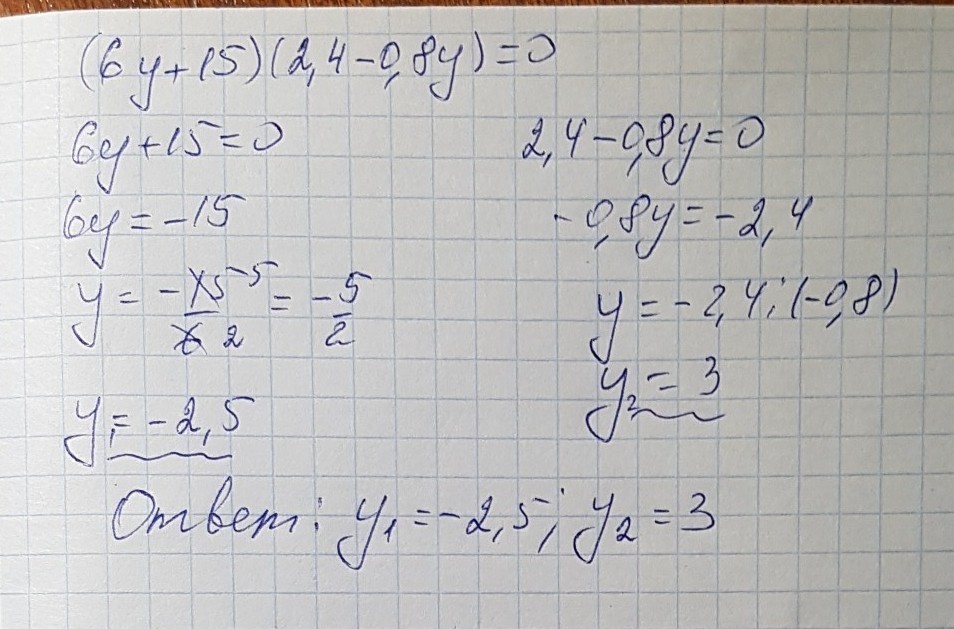 (6y+15)(2,4-0,8y)=0
6y+15=0 2,4-0,8y=0
6y=-15 -0,8y=-2,4
y = -15/6 -5 2 = -5/2 y=-2,4:(-0,8)
y₂ = 3
y₁ = -2,5
Ответ: y₁ =-2,5; y₂ =3